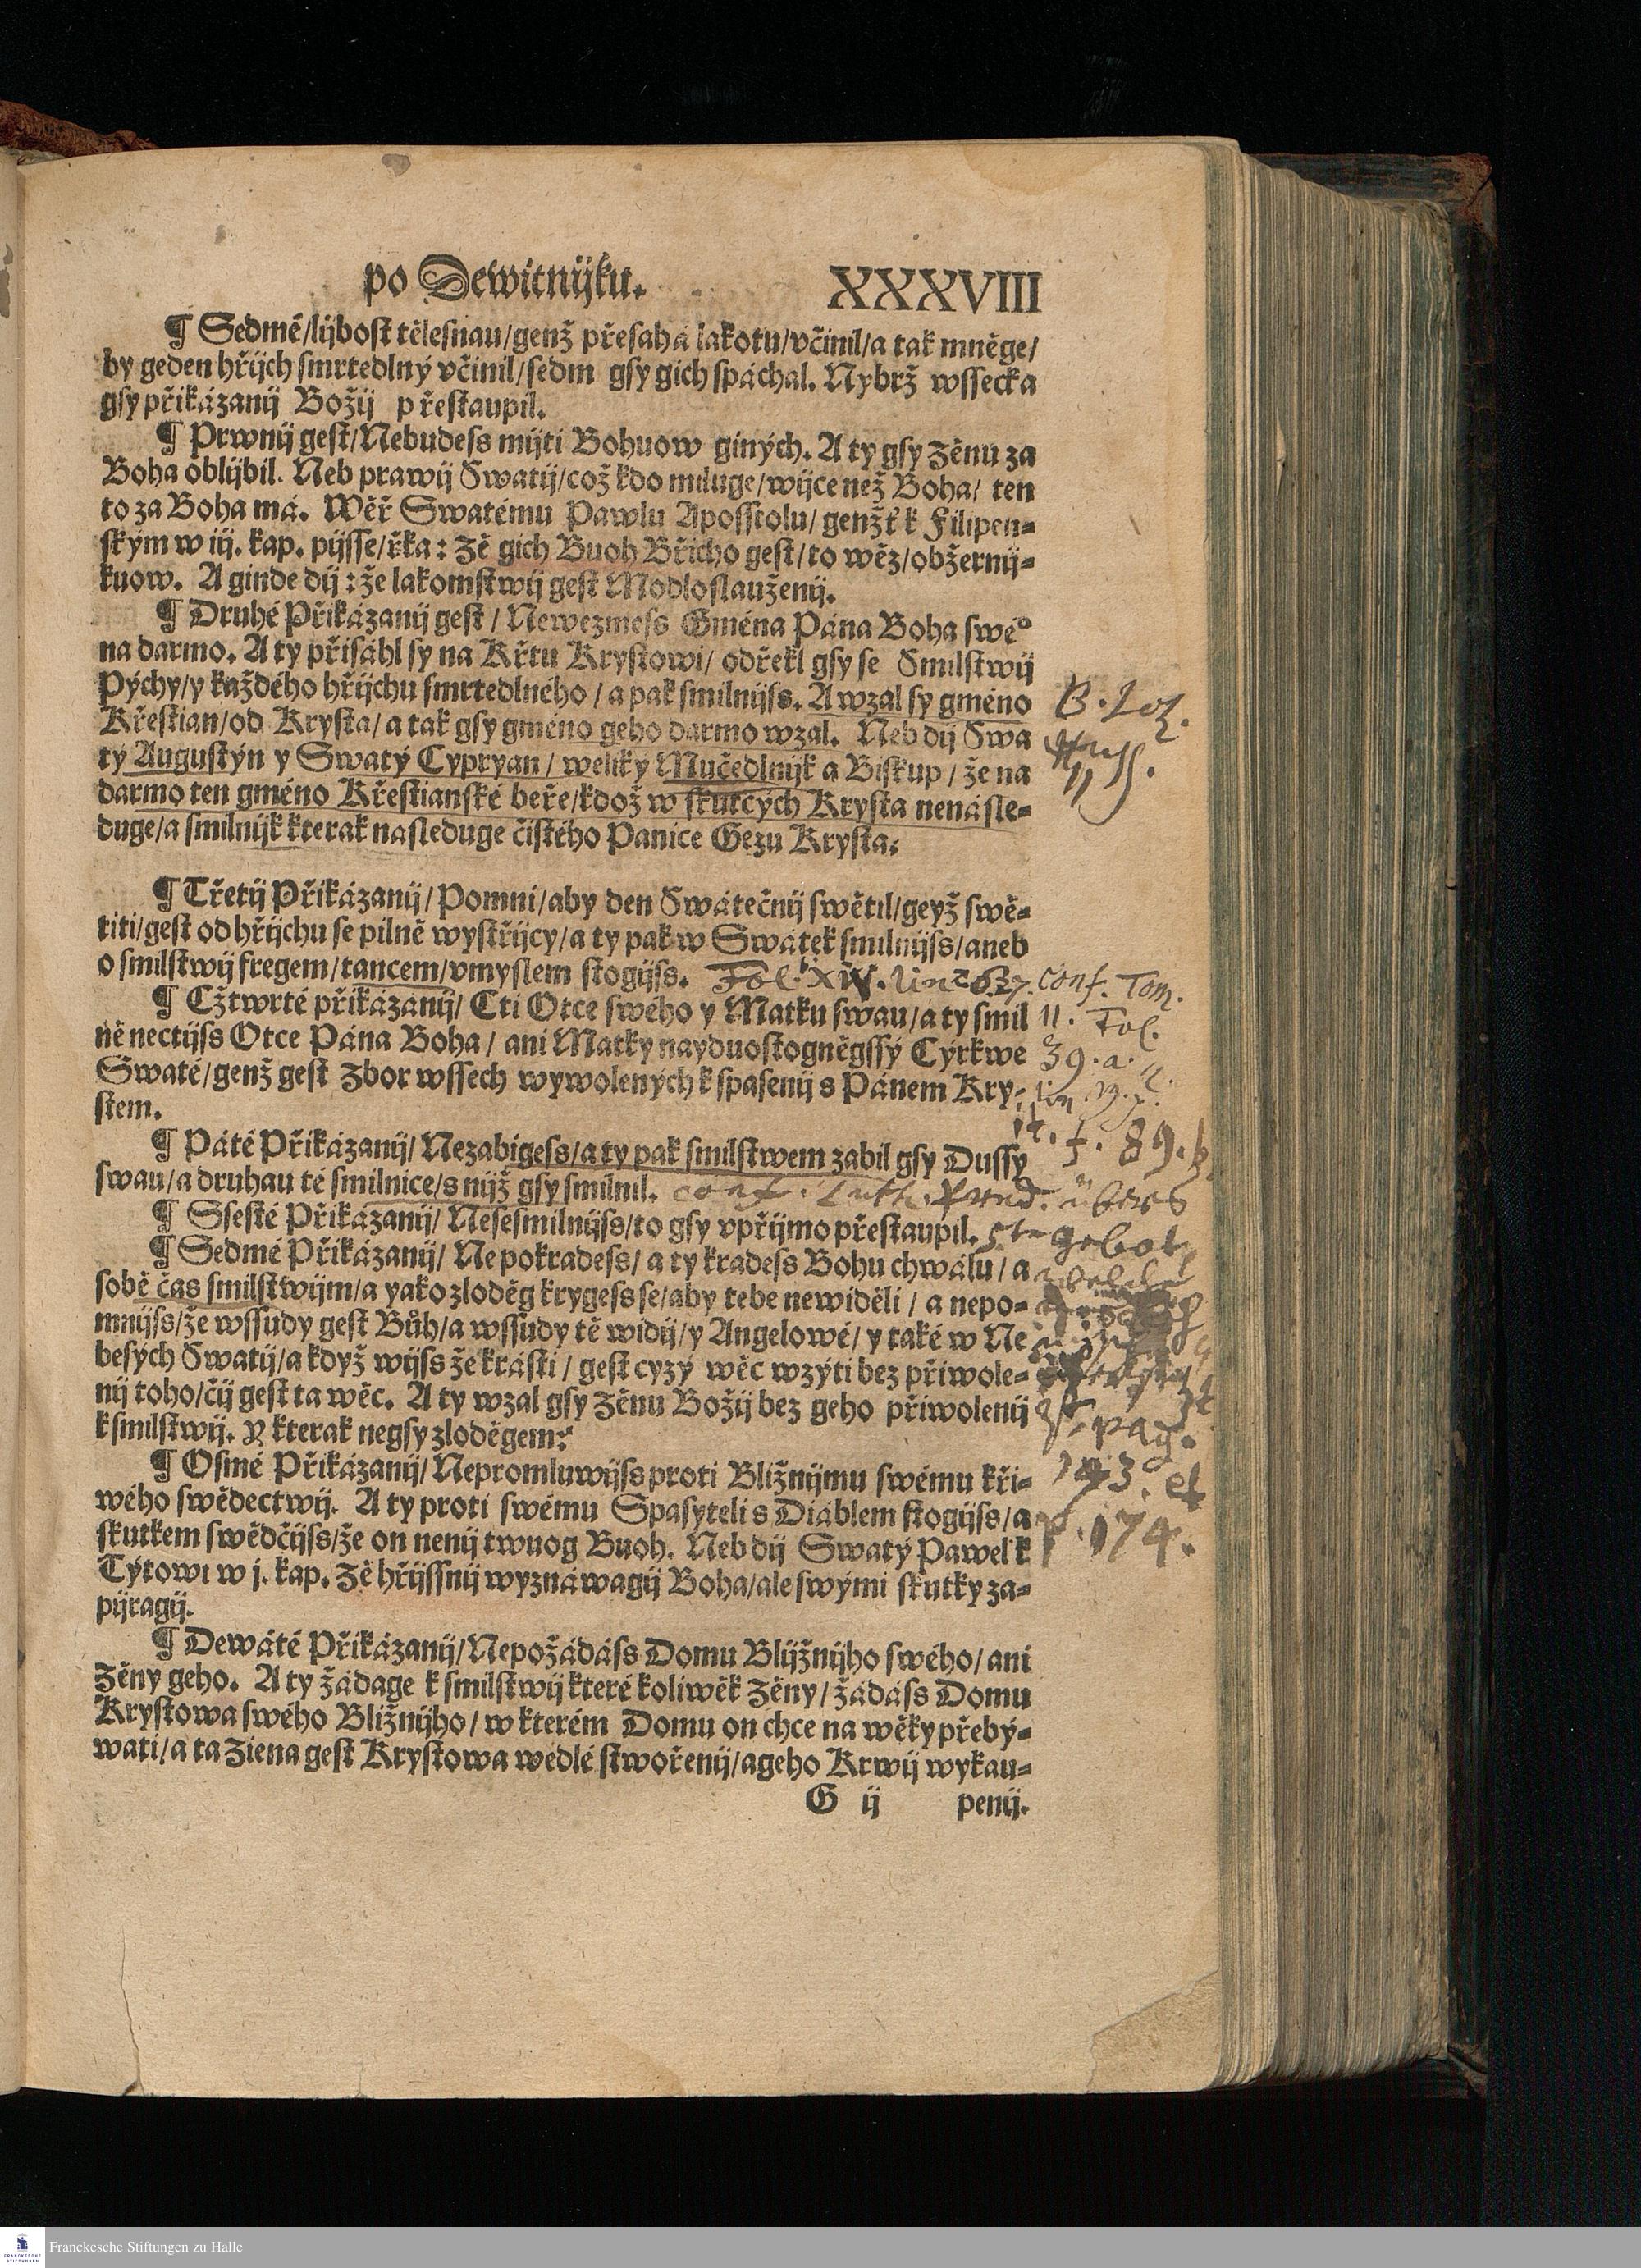 po Dewitnijku. XXXVIII
¶ Sedmé/lijbost tělesnau/genž přesahá lakotu/včinil/a tak mněge/
by geden hřijch smrtedlný včinil/sedm gsy gich spáchal. Nybrž wssecka
gsy přikázanij Božij přestaupil.
¶ Prwnij gest/Nebudess mijti Bohuow giných. A ty gsy Zěnu za
Boha oblijbil. Neb prawij Swatij/což kdo miluge/wijce než Boha/ ten
to za Boha má. Wěř Swatému Pawlu Aposstolu/genžť k Filipen-
ským w iij. kap. pijsse/řka: Zě gich Buoh Břicho gest/to wěz/obžernij-
kuow. A ginde dij: že lakomstwij gest Modloslauženij.
¶ Druhé Přikázanij gest/ Newezmess Gména Pána Boha swé°
na darmo. A ty přisáhl sy na Křtu Krystowi/ odřekl gsy se Smilstwij
Pýchy/y každého hřijchu smrtedlného/a pak smilnijss. A wzal sy gméno
Křestian/od Krysta/a tak gsy gméno geho darmo wzal. Neb dij Swa
tý Augustýn y Swatý Cypryan/ weliký Mučedlnijk a Biskup/ že na
darmo ten gméno Křestianské beře/kdož w skutcých Krysta nenásle-
duge/a smilnijk kterak nasleduge čistého Panice Gezu Krysta.
¶ Třetij Přikázanij/Pomni/aby den Swátečnij swětil/geyž swě-
titi/gest od hřijchu se pilně wystřijcy/a ty pak w Swátek smilnijss/aneb
o smilstwij fregem/tancem/vmyslem stogijss. Fol. conf. Tom.
¶ Cžtwrté přikázanij/ Cti Otce swého y Matku swau/a ty smil 11. Fol.
ně nectijss Otce Pána Boha/ ani Matky nayduostogněgssý Cýrkwe 39. a.
Swaté/genž gest Zbor wssech wywolených k spasenij s Pánem Kry-
stem.
¶ Páté Přikázanij/ Nezabigess/a ty pak smilstwem zabil gsy Dussy f. 89. b.
swau/a druhau té smilnice/s nijž gsy smilnil. conf. Luth. übers
¶ Ssesté Přikázanij/ Nesesmilnijss/to gsy vpřijmo přestaupil. 5te gebot
¶ Sedmé Přikázanij/ Nepokradess/ a ty kradess Bohu chwálu/ a
sobě čas smilstwijm/a yako zloděg krygess se/aby tebe newiděli/ a nepo-
mnijss/že wssudy gest Bůh/a wssudy tě widij/y Angelowé/ y také w Ne
besých Swatij/a když wijss že krásti/ gest cyzý wěc wzýti bez přiwole-
nij toho/čij gest ta wěc. A ty wzal gsy Zěnu Božij bez geho přiwolenij
k smilstwij. Y kterak negsy zloděgem: pag.
¶ Osmé Přikázanij/Nepromluwijss proti Bližnijmu swému kři- 143. et
wého swědectwij. A ty proti swému Spasyteli s Diáblem stogijss/a
skutkem swědčijss/že on nenij twuog Buoh. Neb dij Swatý Pawel k p. 174.
Týtowi w j. kap. Zě hřijssnij wyznáwagij Boha/ale swými skutky za-
pijragij.
¶ Dewáté Přikázanij/Nepožádáss Domu Blijžnijho swého/ ani
Zěny geho. A ty žádage k smilstwij které koliwěk Zěny/ žádáss Domu
Krystowa swého Bližnijho/ w kterém Domu on chce na wěky přebý-
wati/a ta Ziena gest Krystowa wedlé stwořenij/a geho Krwij wykau-
G ij penij.
Franckesche Stiftungen zu Halle